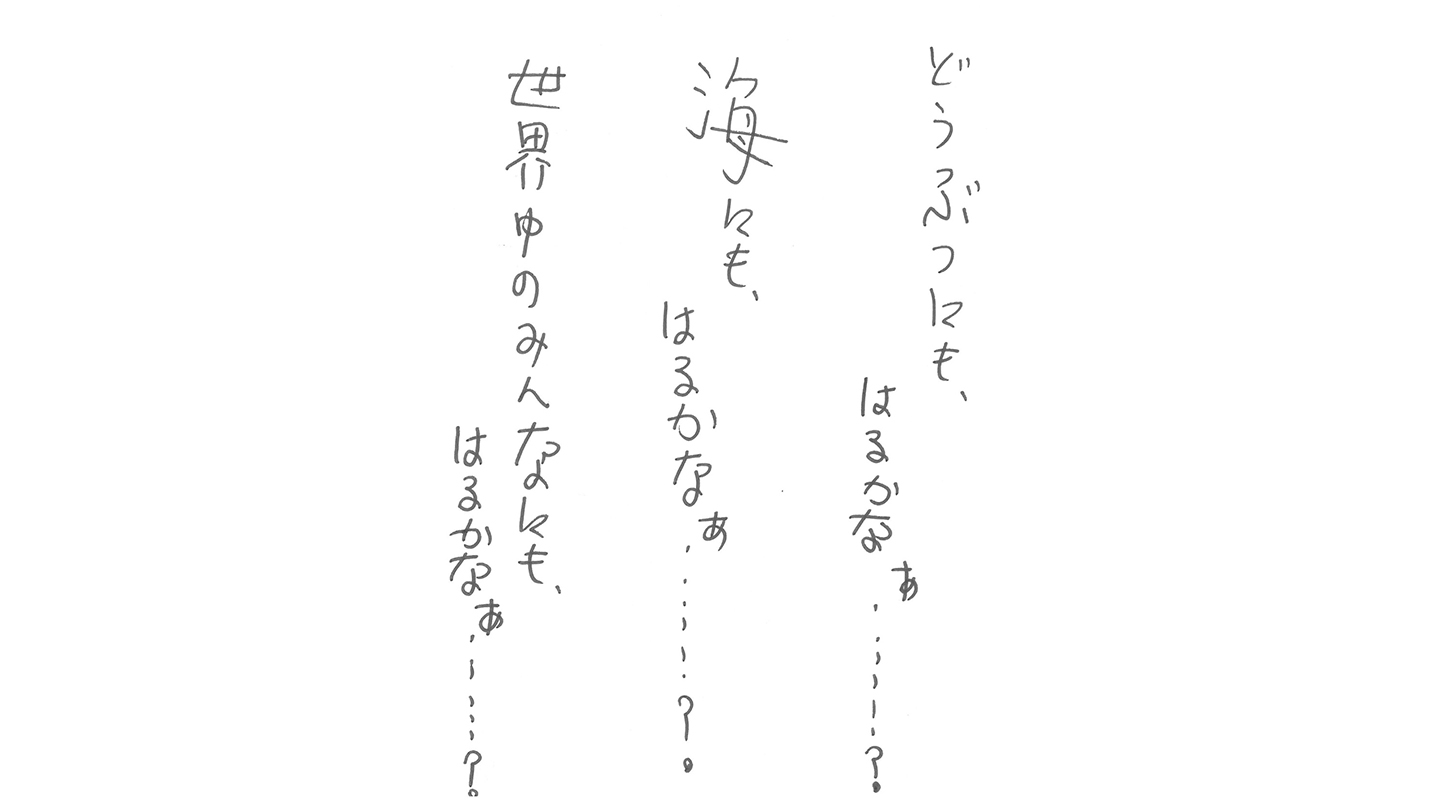 どうぶつにも、
はるかなぁ……?
海にも、
はるかなぁ……?
世界中のみんなにも、
はるかなぁ……?